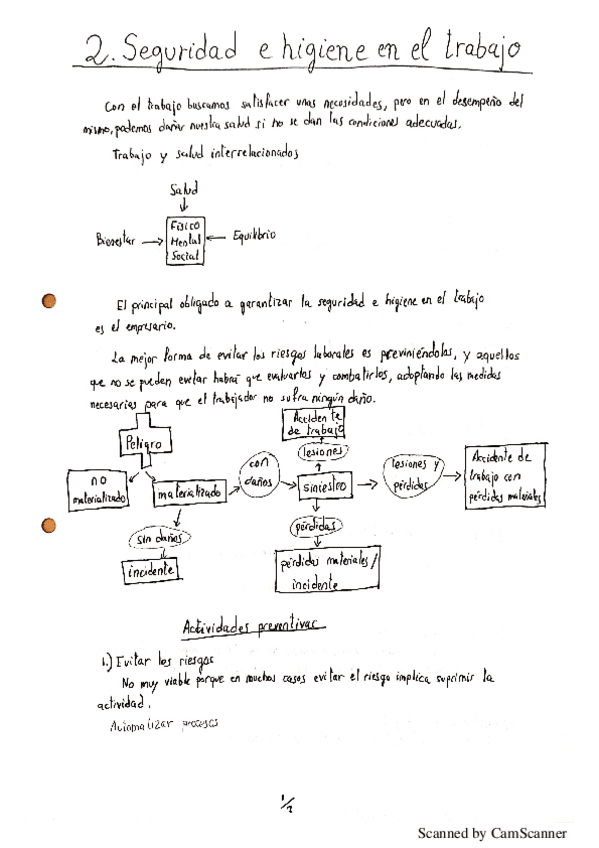 2. Seguridad e higiene en el trabajo
Con el trabajo buscamos satisfacer unas necesidades, pero en el desempeño del
mismo, podemos dañar nuestra salud si no se dan las condiciones adecuadas.
Trabajo y salud interrelacionados
Salud
Físico
Bienestar → Mental ← Equilibrio
Social
El principal obligado a garantizar la seguridad e higiene en el trabajo
es el empresario.
La mejor forma de evitar los riesgos laborales es previniéndolas, y aquellos
que no se pueden evitar habrá que evaluarlos y combatirlos, adoptando las medidas
necesarias para que el trabajador no sufra ningún daño.
Accidente
de trabajo
Peligro
lesiones
no
materializado
materializado
con
daños
siniestro
lesiones y
pérdidas
Accidente de
trabajo con
pérdidas materiales
sin daños
incidente
pérdidas
pérdidas materiales /
incidente
Actividades preventivas
1.) Evitar los riesgos
No muy viable porque en muchos casos evitar el riesgo implica suprimir la
actividad.
Automatizar procesos
1/2
Scanned by CamScanner